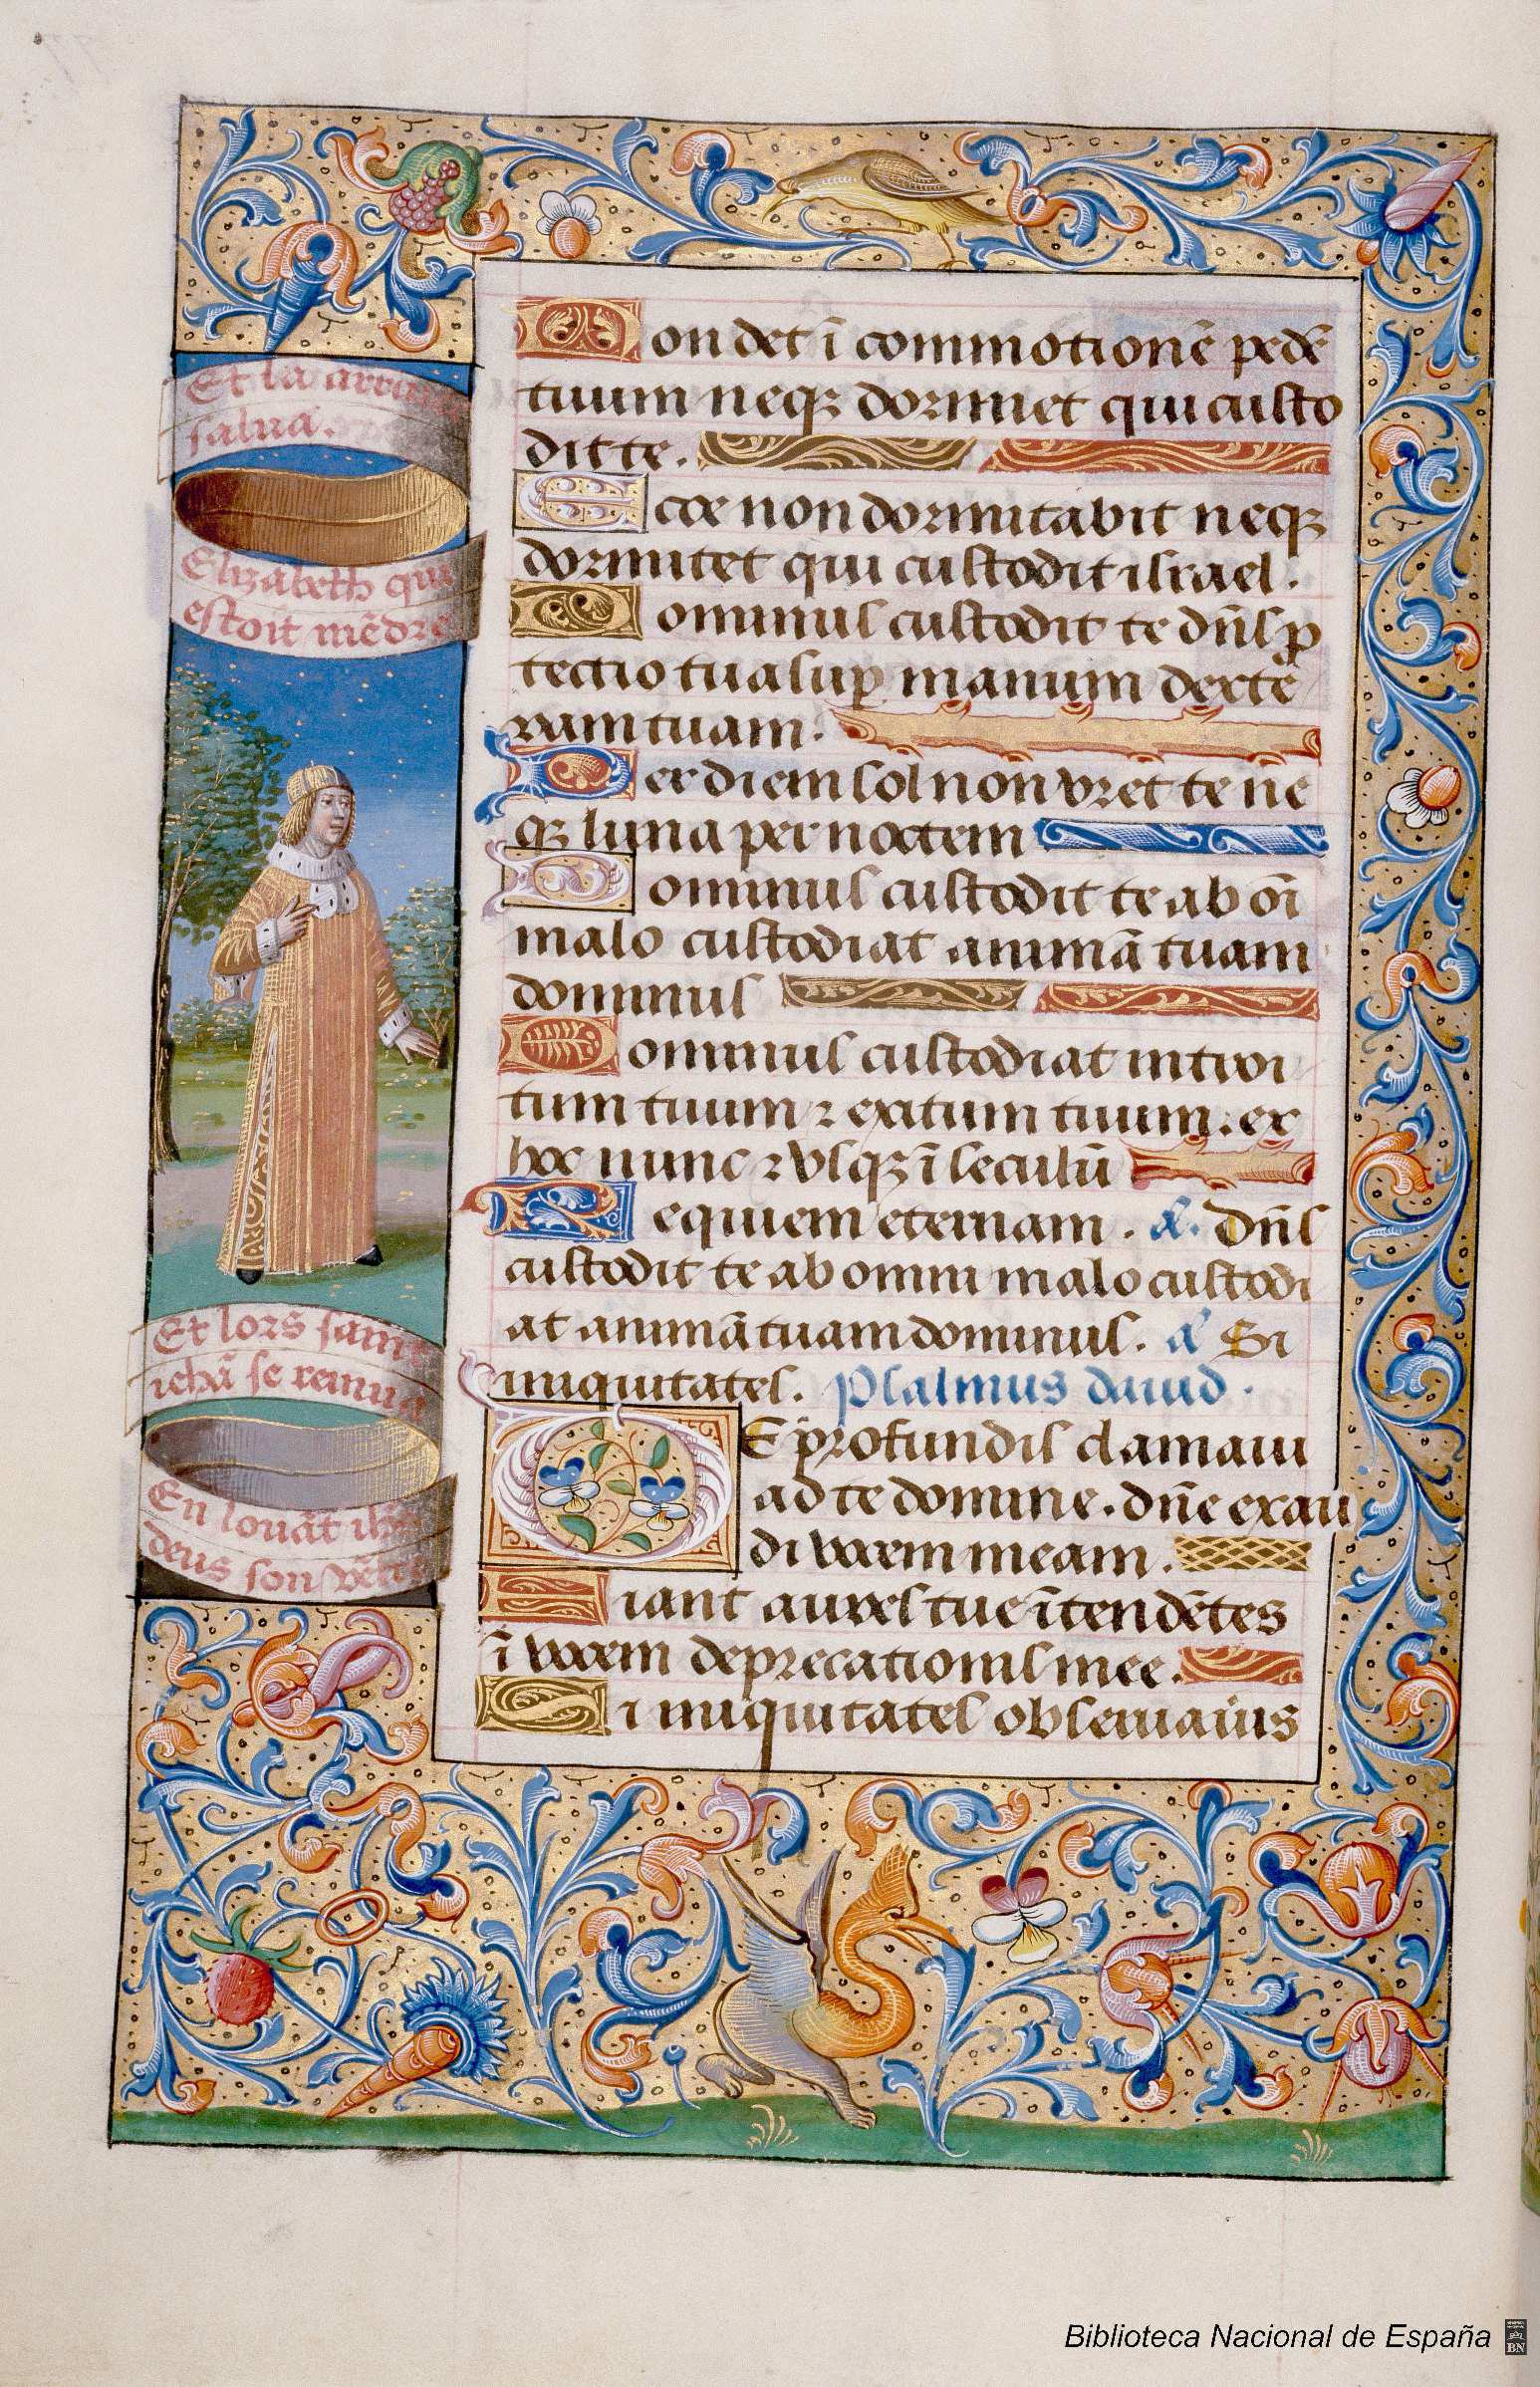 Et la
salua.
Elizabeth qui
estoit mẽdre
Et lors saint
iehã se remua
En louãt ihũ
deus son vẽtre
Non det ĩ commotionẽ pedẽ
tuum neqꝫ dormiet qui custo
dit te.
Ecce non dormitabit neqꝫ
dormiet qui custodit israel.
Dominus custodit te dñs ꝓ
tectio tua suꝑ manum dexte
ram tuam.
Per diem sol non vret te ne
qꝫ luna per noctem
Dominus custodit te ab oĩ
malo custodiat animã tuam
dominus
Dominus custodiat introi
tum tuum ⁊ exitum tuum: ex
hoc nunc ⁊ vsqꝫ ĩ seculũ
Requiem eternam. A. Dñs
custodit te ab omni malo custodi
at animã tuam dominus. A Si
iniquitates. Psalmus dauid.
DE profundis clamaui
ad te domine. dñe exau
di vocem meam.
Fiant aures tue ĩtendẽtes
ĩ vocem deprecationis mee.
Si iniquitates obseruaius
Biblioteca Nacional de España
BN